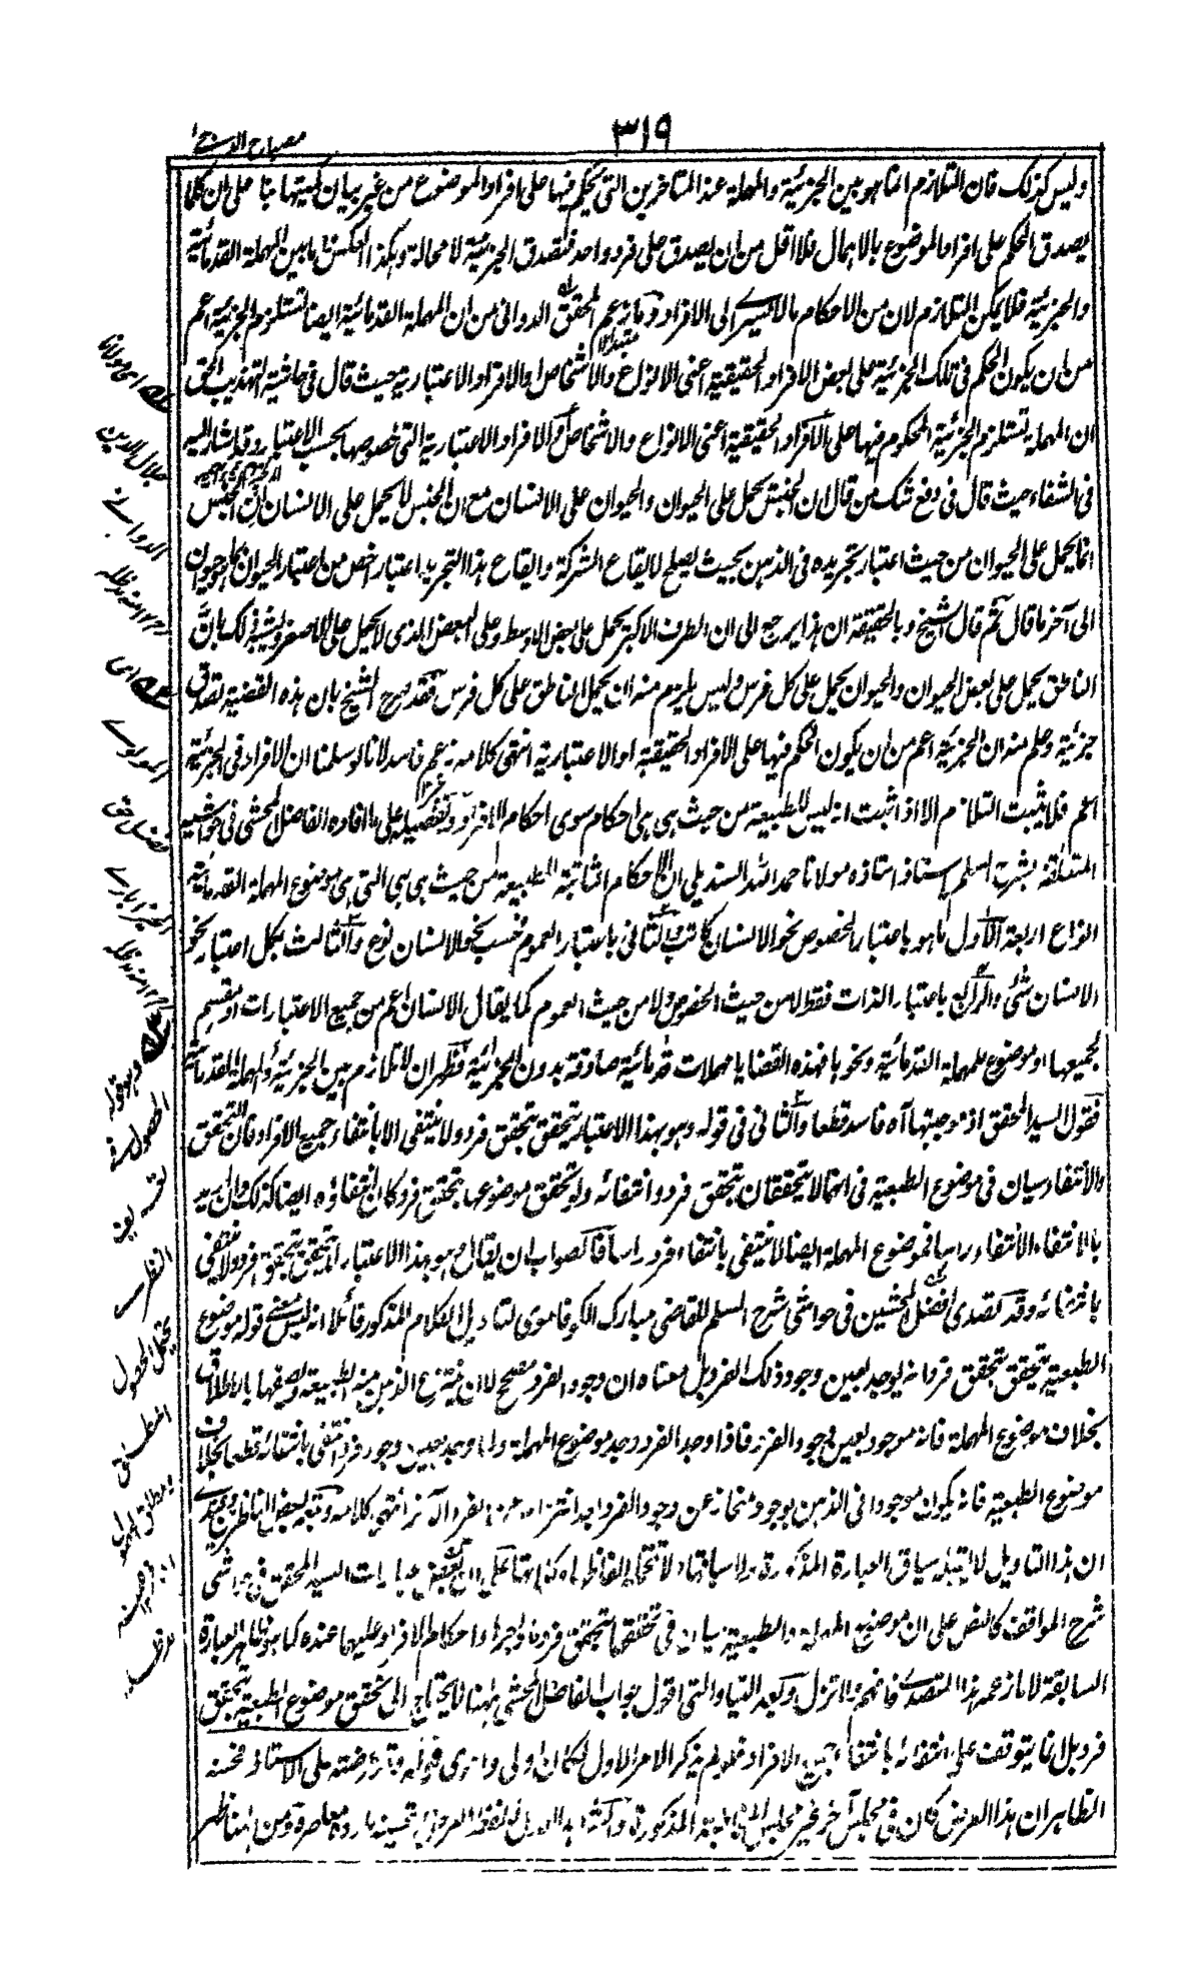 ٣١٩
مصباح الدجى
وليس كذلك فان التلازم انما هو بين الجزئية والمهملة عند المتاخرين التي يحكم فيها على افراد الموضوع من غير بيان كميتها بناء على ان كلما
يصدق الحكم على افراد الموضوع بالاهمال فلا اقل من ان يصدق على فرد واحد فتصدق الجزئية لا محالة وهكذا العكس واما بين المهملة القدمائية
والجزئية فلا يمكن التلازم لان من الاحكام ما لا يسرى الى الافراد وما زعم المحقق الدواني من ان المهملة القدمائية ايضا تستلزم الجزئية اعم
من ان يكون الحكم في تلك الجزئية على بعض الافراد الحقيقية اعنى الانواع والاشخاص او الافراد الاعتبارية حيث قال في حاشية التهذيب الحق
ان المهملة تستلزم الجزئية المحكوم فيها على الافراد الحقيقية اعنى الانواع والاشخاص او الافراد الاعتبارية التي خصوصها بحسب الاعتبار وقد اشار اليه
في الشفاء حيث قال في دفع شك من قال ان الجنس يحمل على الحيوان والحيوان على الانسان مع ان الجنس لا يحمل على الانسان ان الجنس
انما يحمل على الحيوان من حيث اعتبار تجريده في الذهن بحيث يصلح لايقاع الشركة وايقاع هذا التجريد اعتبار اخص من اعتبار الحيوان بما هو حيوان
الى آخر ما قال ثم قال الشيخ وبالحقيقة ان هذا يرجع الى ان الطرف الاكبر يحمل على بعض الاوسط وعلى البعض الذي لا يحمل على الاصغر ويشبه ذلك بان
الناطق يحمل على بعض الحيوان والحيوان يحمل على كل فرس وليس يلزم منه ان يحمل الناطق على كل فرس فقد صرح الشيخ بان هذه القضية تصدق
جزئية وعلم منه ان الجزئية اعم من ان يكون الحكم فيها على الافراد الحقيقية او الاعتبارية انتهى كلامه زعم فاسد لانا لو سلمنا ان الافراد في الجزئية
اعم فلا يثبت التلازم الا اذا ثبت انه ليس للطبيعة من حيث هي هي احكام سوى احكام الافراد وتفصيله على ما افاده الفاضل المحشى في حواشيه
المتعلقة بشرح السلم لاستاذ استاذه مولانا حمد الله السنديلي ان الاحكام الثابتة للطبيعة من حيث هي هي التي هي موضوع المهملة القدمائية
انواع اربعة الاول ما هو باعتبار الخصوص نحو الانسان كاتب والثاني باعتبار العموم فحسب نحو الانسان نوع والثالث بكل اعتبار نحو
الانسان شئ والرابع باعتبار الذات فقط لا من حيث الخصوص ولا من حيث العموم كما يقال الانسان اعم من جميع الاعتبارات او مقسم
لجميعها او موضوع للمهملة القدمائية ونحوها فهذه القضايا مهملات قدمائية صادقة بدون الجزئية فظهر ان لا تلازم بين الجزئية والمهملة القدمائية
فقول السيد المحقق اذ موجبتها آه فاسد قطعا والثاني في قوله وهو بهذا الاعتبار يتحقق بتحقق فرد ولا ينتفى الا بانتفاء جميع الافراد فان التحقق
والانتفاء سيان في موضوع الطبيعية في انهما لا يتحققان بتحقق فرد وانتفائه ولو تحقق موضوعها بتحقق فرد كان انتفاؤه ايضا كذلك وان اريد
بالانتفاء الانتفاء راسا فموضوع المهملة ايضا لا ينتفى بانتفاء فرد راسا فالصواب ان يقال وهو بهذا الاعتبار لا يتحقق بتحقق فرد ولا ينتفى
بانتفائه وقد تصدى افضل المحشين في حواشي شرح السلم للقاضي مبارك الكوفاموى لتاويل الكلام المذكور قائلا انه ليس معنى قوله موضوع
الطبيعية يتحقق بتحقق فرد انه يوجد بعين وجود ذلك الفرد بل معناه ان وجود الفرد مصحح لان ينتزع الذهن منه الطبيعة ويصفها بالاطلاق
بخلاف موضوع المهملة فانه موجود بعين وجود الفرد فاذا وجد الفرد وجد موضوع المهملة ولما وجد بعين وجود فرد انتفى بانتفائه قطعا بخلاف
موضوع الطبيعية فانه يكون موجودا في الذهن بوجود منحاز عن وجود الفرد بعد انتزاعه
ان هذا التاويل لا يقبله سياق العبارة المذكورة ولا سباقها ولا تتحمله الفاظها
شرح المواقف كالنص على ان موضوع المهملة والطبيعية سيان في تحققهما بتحقق فرد ما واجراء احكام الافراد عليهما عنده كما هو ظاهر العبارة
السابقة لا ما زعمه هذا المتصدى فافهم ولا تزل وبعد اللتيا والتي اقول جواب الفاضل المحشى ههنا لا يحتاج الى تحقق موضوع الطبيعية بتحقق
فرد بل انما يتوقف على انتفائه بانتفاء جميع الافراد فلو لم يذكر الامر الاول لكان اولى واحرى قوله وقد عرضته على الاستاذ فحسنه
الظاهر ان هذا العرض كان في مجلس آخر غير مجلس
اى مولانا
جلال الدين
الدوانى
١٢ منه مد ظله
اى
المولوى
فضل حق
الخيرابادى
١٢ منه مد ظله
وهو قوله
الحصول
النظر
الحصول